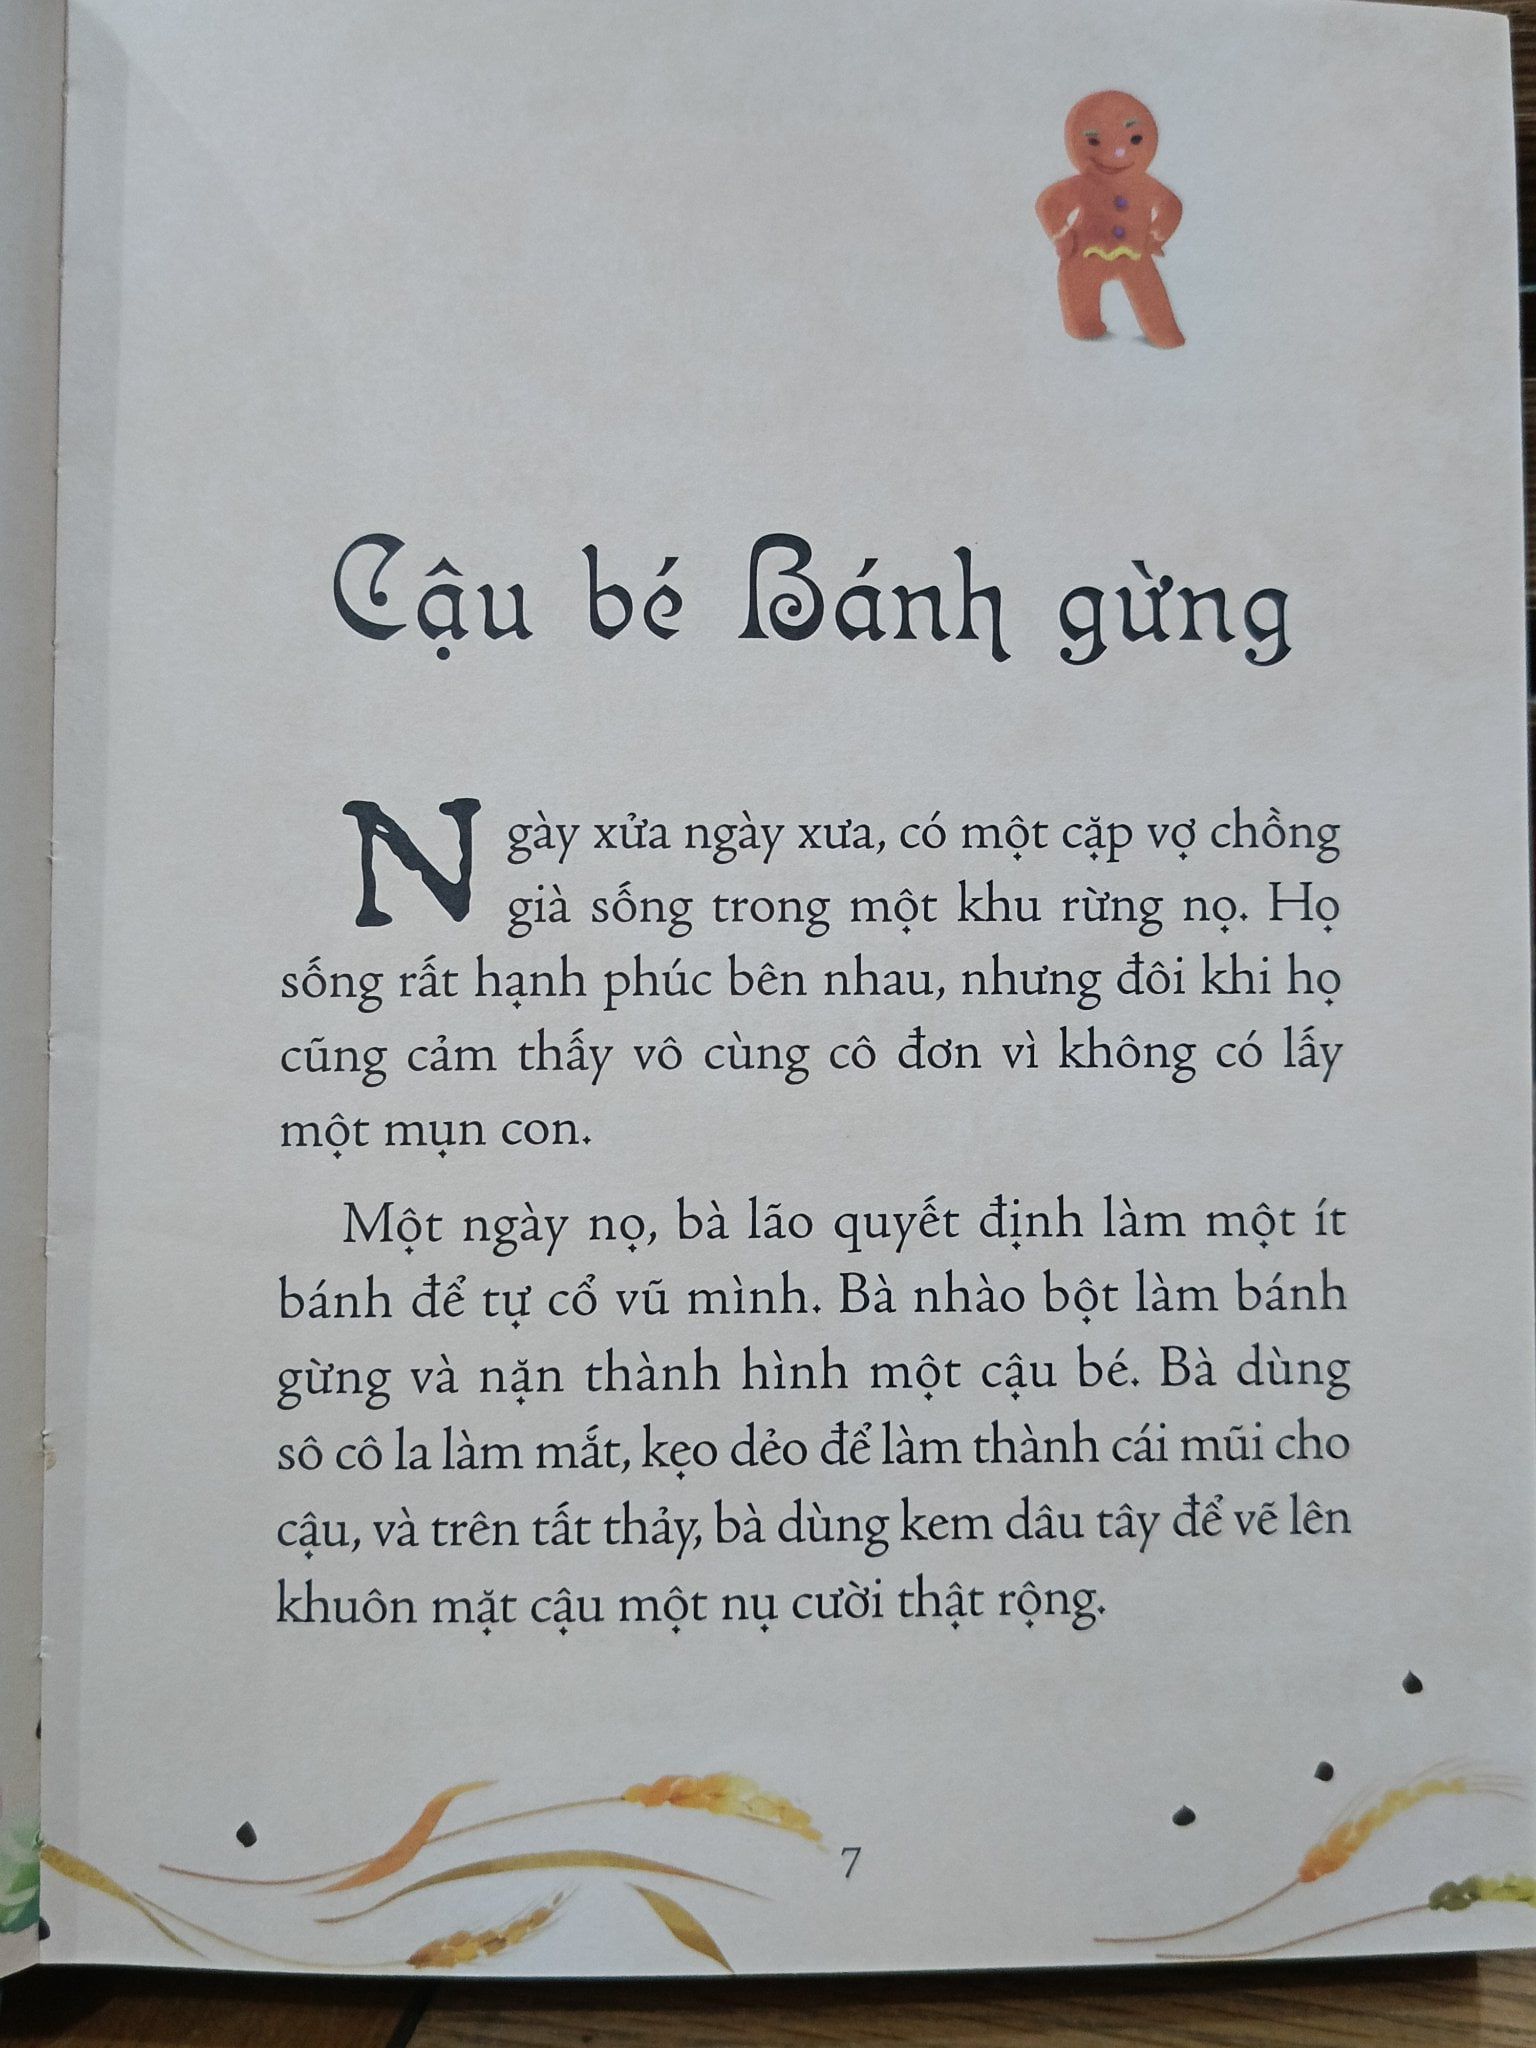 Cậu bé Bánh gừng
Ngày xửa ngày xưa, có một cặp vợ chồng
già sống trong một khu rừng nọ. Họ
sống rất hạnh phúc bên nhau, nhưng đôi khi họ
cũng cảm thấy vô cùng cô đơn vì không có lấy
một mụn con.
Một ngày nọ, bà lão quyết định làm một ít
bánh để tự cổ vũ mình. Bà nhào bột làm bánh
gừng và nặn thành hình một cậu bé. Bà dùng
sô cô la làm mắt, kẹo dẻo để làm thành cái mũi cho
cậu, và trên tất thảy, bà dùng kem dâu tây để vẽ lên
khuôn mặt cậu một nụ cười thật rộng.
7